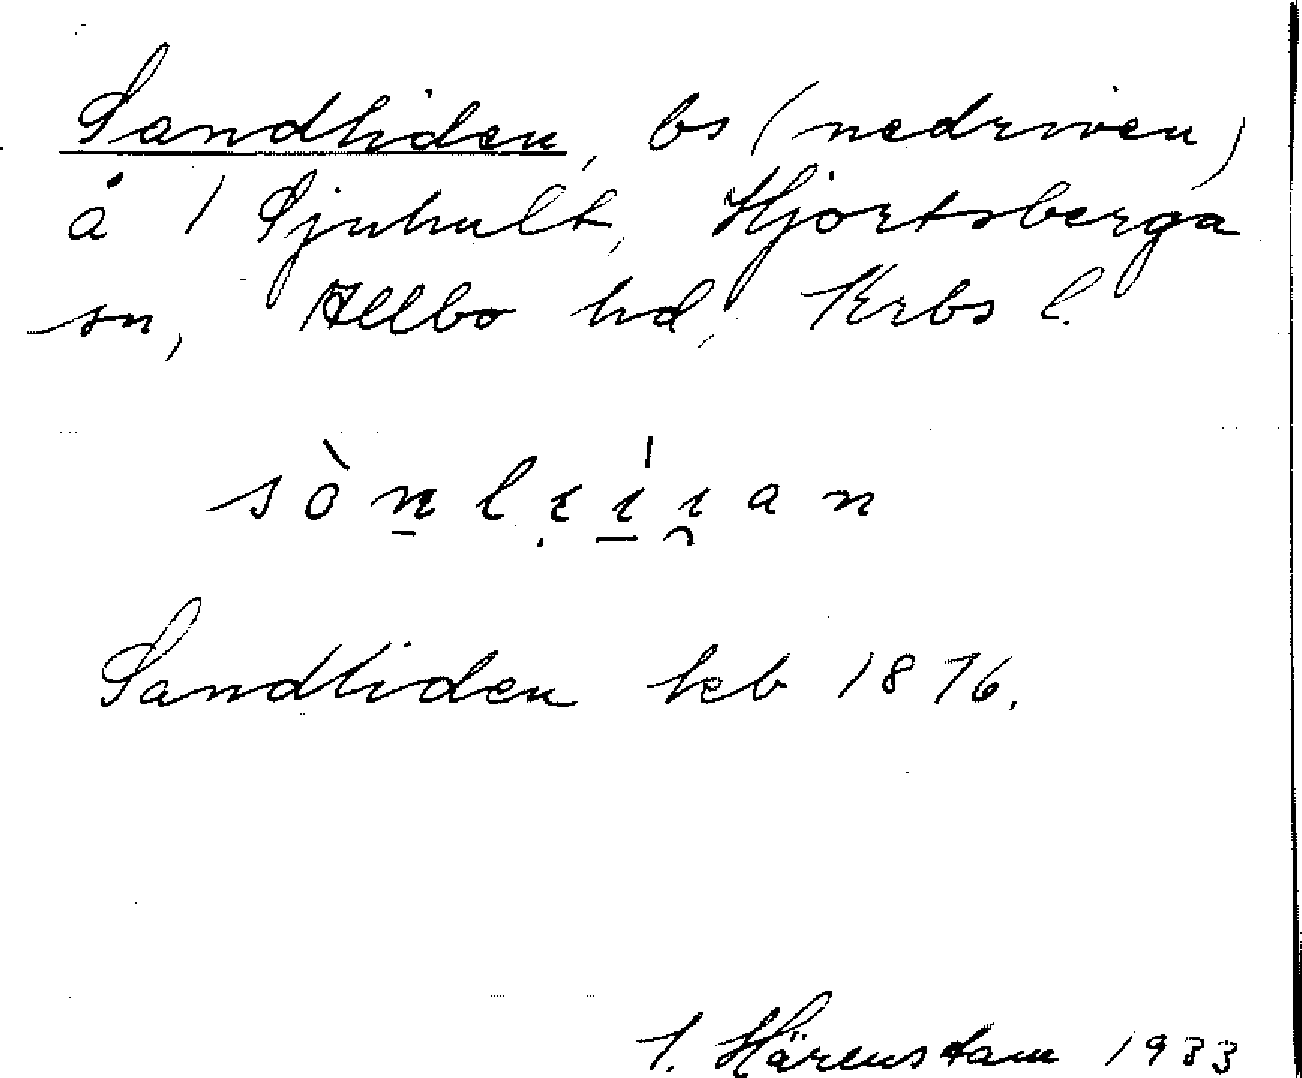 Sandliden, bs (nedriven)
å 1 Sjuhult, Hjortsberga
sn, Allbo hd, Krbs l.
Sandliden heb 1876.
Härenstam 1933